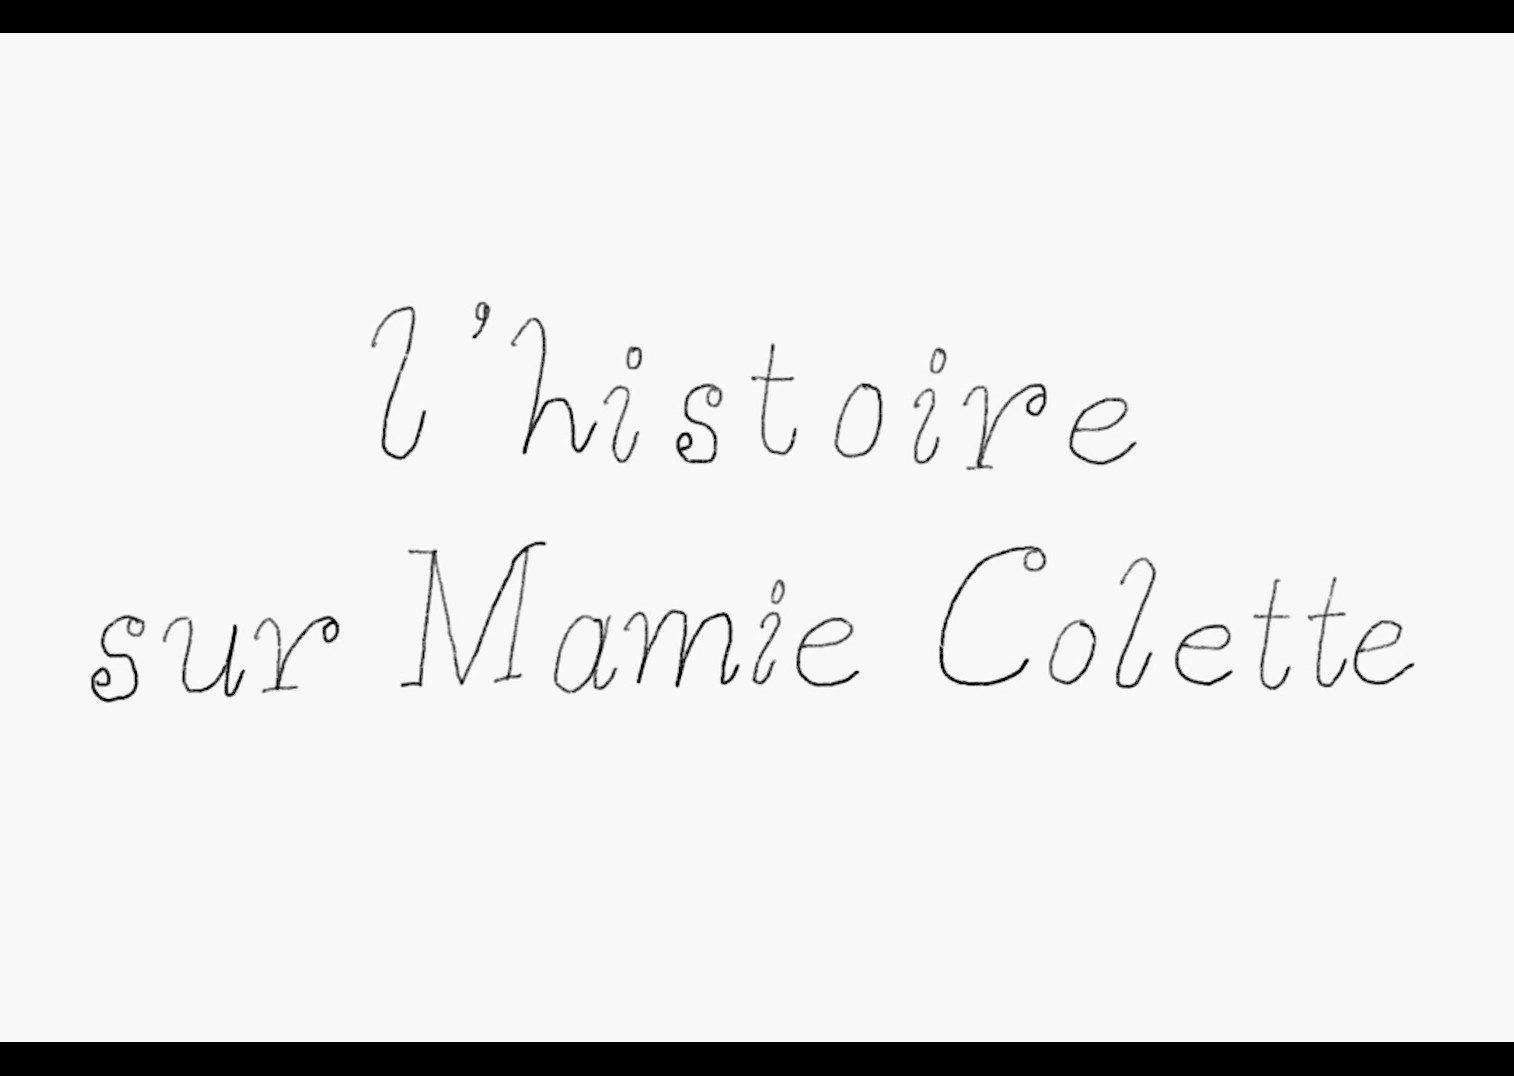 l'histoire
sur Mamie Colette